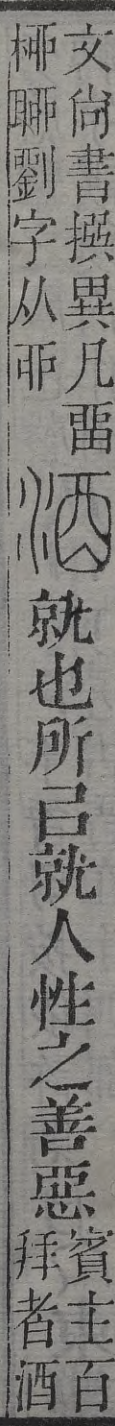 文尙書撰異凡畱
桺聊劉字从丣
酒
就也所㠯就人性之善惡
賓主百
拜者酒